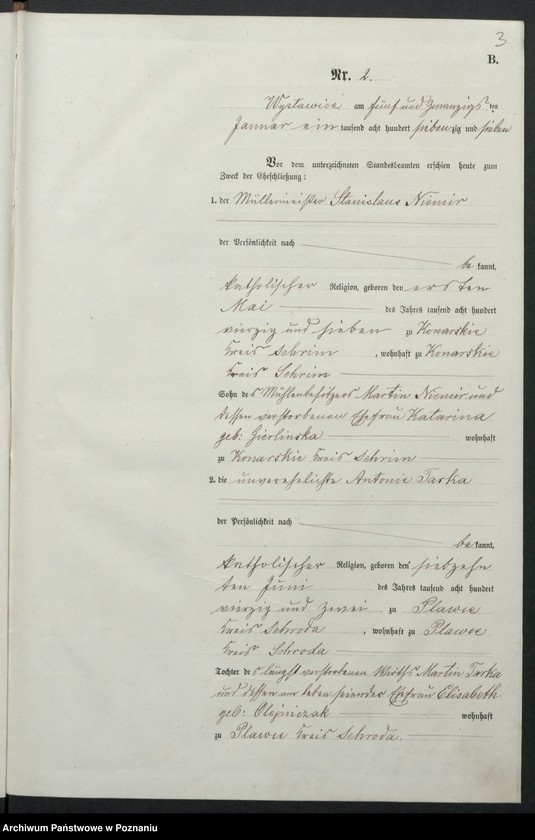 3
B.
Nr. 2.
am fünf und zwanzigsten
Januar ein tausend acht hundert siebenzig und sieben
Vor dem unterzeichneten Standesbeamten erschien heute zum
Zweck der Eheschließung:
1. der Müllermeister Stanislaus Niemir
der Persönlichkeit nach
be kannt,
katholischer Religion, geboren den ersten
Mai des Jahres tausend acht hundert
vierzig und sieben zu Konarskie
Kreis Schrim, wohnhaft zu Konarskie
Kreis Schrim
Sohn des Mühlenbesitzers Martin Niemir und
dessen verstorbenen Ehefrau Katarina
geb: Gierlinska wohnhaft
zu Konarskie Kreis Schrim
2. die unverehelichte Antonie Tarka
der Persönlichkeit nach
be kannt,
katholischer Religion, geboren den siebzehn
ten Juni des Jahres tausend acht hundert
vierzig und zwei zu Plawce
Kreis Schroda, wohnhaft zu Plawce
Kreis Schroda
Tochter des längst verstorbenen Wirths Martin Tarka
und dessen am leben seiender Ehefrau Elisabeth
geb: Olejniczak wohnhaft
zu Plawce Kreis Schroda.
Archiwum Państwowe w Poznaniu